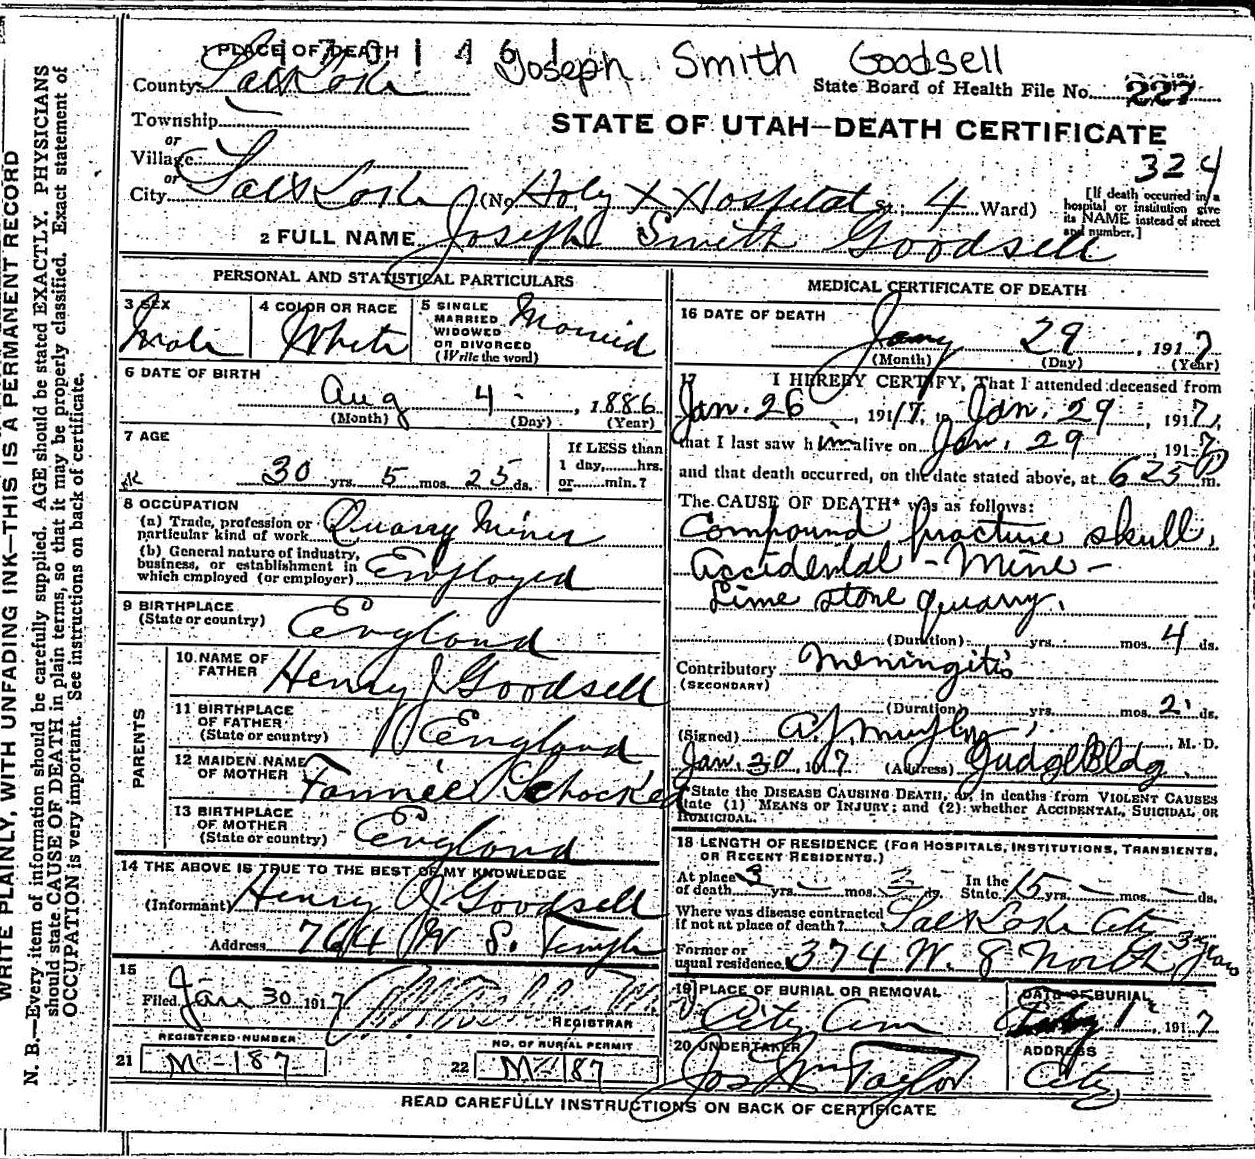 1 PLACE OF DEATH
1701461 Joseph Smith Goodsell
County Salt Lake
State Board of Health File No. 227
Township
STATE OF UTAH—DEATH CERTIFICATE
or
Village
324
or
City Salt Lake (No. Holy X Hospital St.; 4 Ward)
[If death occurred in a hospital or institution give its NAME instead of street and number.]
2 FULL NAME Joseph Smith Goodsell
PERSONAL AND STATISTICAL PARTICULARS
3 SEX
Male
4 COLOR OR RACE
White
5 SINGLE
MARRIED
WIDOWED
OR DIVORCED
(Write the word)
Married
6 DATE OF BIRTH
Aug 4 , 1886
(Month) (Day) (Year)
7 AGE
30 yrs. 5 mos. 25 ds.
If LESS than
1 day,......hrs.
or......min.?
8 OCCUPATION
(a) Trade, profession or
particular kind of work Quarry Miner
(b) General nature of industry,
business, or establishment in
which employed (or employer) Employed
9 BIRTHPLACE
(State or country) England
PARENTS
10 NAME OF
FATHER Henry J Goodsell
11 BIRTHPLACE
OF FATHER
(State or country) England
12 MAIDEN NAME
OF MOTHER Fannie
13 BIRTHPLACE
OF MOTHER
(State or country) England
14 THE ABOVE IS TRUE TO THE BEST OF MY KNOWLEDGE
(Informant) Henry J Goodsell
Address 764 W S. Temple
15
Filed Jan 30 1917
REGISTRAR
REGISTERED NUMBER
21 M-187
NO. OF BURIAL PERMIT
22 M-187
MEDICAL CERTIFICATE OF DEATH
16 DATE OF DEATH
Jany 29 , 1917
(Month) (Day) (Year)
17 I HEREBY CERTIFY, That I attended deceased from
Jan. 26 , 1917, to Jan. 29 , 1917,
that I last saw him alive on Jan. 29 , 1917
and that death occurred, on the date stated above, at 625 P m.
The CAUSE OF DEATH* was as follows:
Compound fracture skull.
Accidental - Mine -
Lime stone quarry.
(Duration) yrs. mos. 4 ds.
Contributory Meningitis
(SECONDARY)
(Duration) yrs. mos. 2 ds.
(Signed) A. J. , M. D.
Jan. 30, 1917 (Address) Judge Bldg.
*State the DISEASE CAUSING DEATH, or, in deaths from VIOLENT CAUSES
state (1) MEANS OF INJURY; and (2) whether ACCIDENTAL, SUICIDAL OR
HOMICIDAL.
18 LENGTH OF RESIDENCE (FOR HOSPITALS, INSTITUTIONS, TRANSIENTS,
OR RECENT RESIDENTS.)
At place
of death 3 yrs. - mos. 3 ds. In the
State 15 yrs. - mos. - ds.
Where was disease contracted
If not at place of death? Salt Lake City
Former or
usual residence 374 W. 8 North 3 years
19 PLACE OF BURIAL OR REMOVAL
City Cem
DATE OF BURIAL
Feby 1, 1917
20 UNDERTAKER
Jos Wm Taylor
ADDRESS
City
READ CAREFULLY INSTRUCTIONS ON BACK OF CERTIFICATE
WRITE PLAINLY, WITH UNFADING INK—THIS IS A PERMANENT RECORD
N. B.—Every item of information should be carefully supplied. AGE should be stated EXACTLY. PHYSICIANS
should state CAUSE OF DEATH in plain terms, so that it may be properly classified. Exact statement of
OCCUPATION is very important. See instructions on back of certificate.